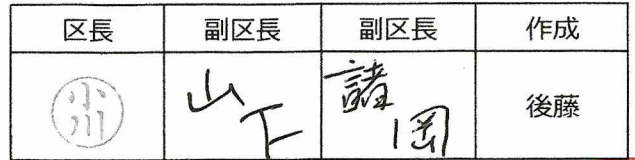 区長 副区長 副区長 作成
小川 山下 諸岡 後藤